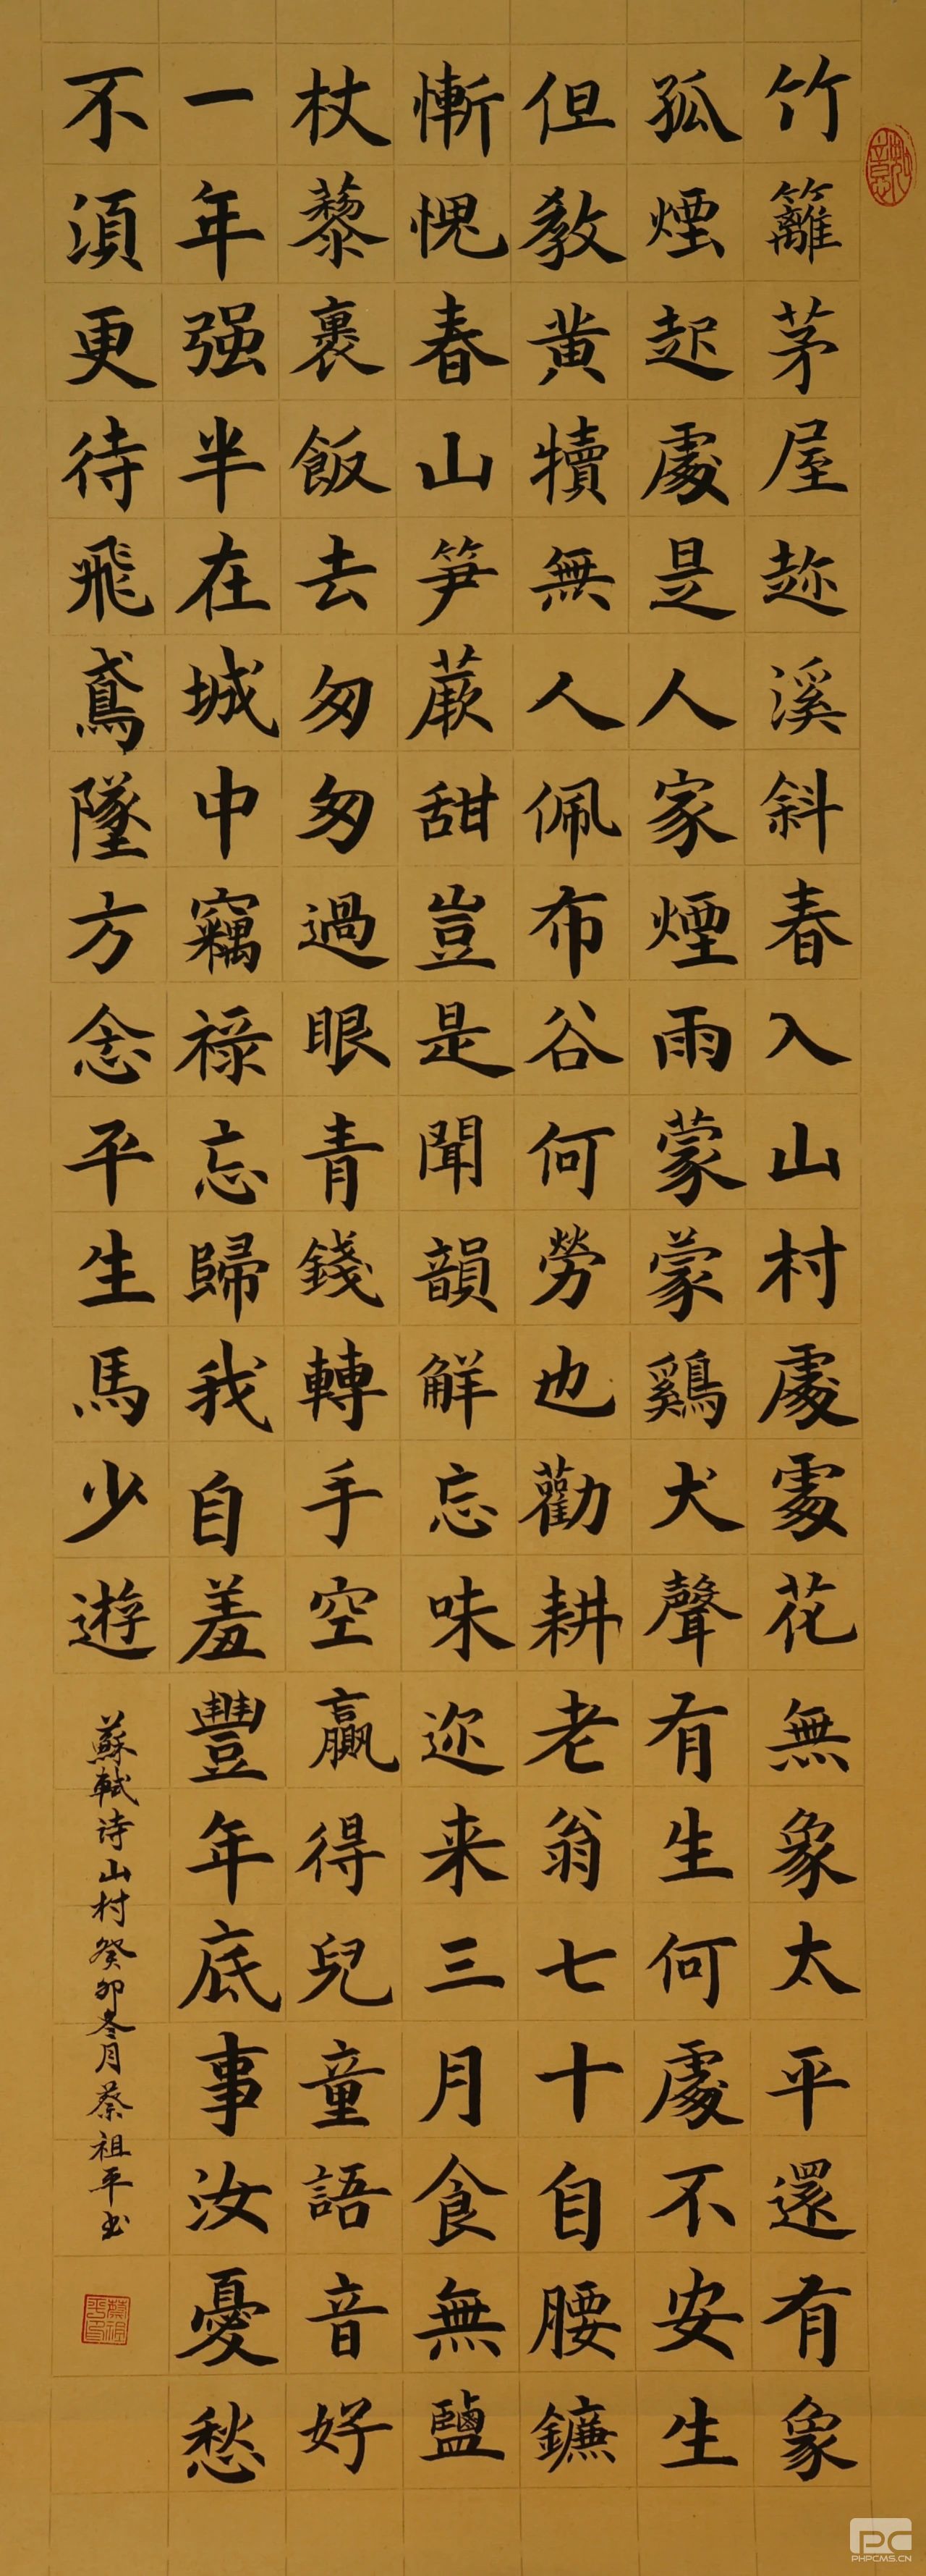 竹籬茅屋趂溪斜春入山村處處花無象太平還有象
孤煙起處是人家煙雨蒙蒙鷄犬聲有生何處不安生
但教黄犢無人佩布谷何勞也勸耕老翁七十自腰鐮
慚愧春山笋蕨甜豈是聞韻解忘味迩来三月食無鹽
杖藜裹飯去匆匆過眼青錢轉手空贏得兒童語音好
一年强半在城中竊祿忘歸我自羞豐年底事汝憂愁
不須更待飛鳶墜方念平生馬少遊
蘇軾诗山村癸卯冬月蔡祖平书
PC
PHPCMS.CN